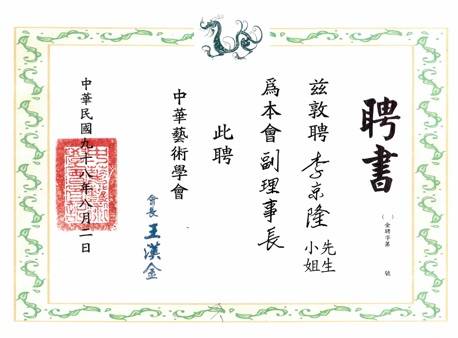 聘書
（ ）金聘字第 號
茲敦聘李京隆先生小姐
為本會副理事長
此聘
中華藝術學會
會長王漢金
中華民國九十八年八月二日